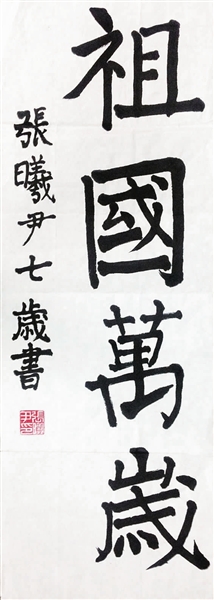 祖國萬歲
張曦尹七歲書